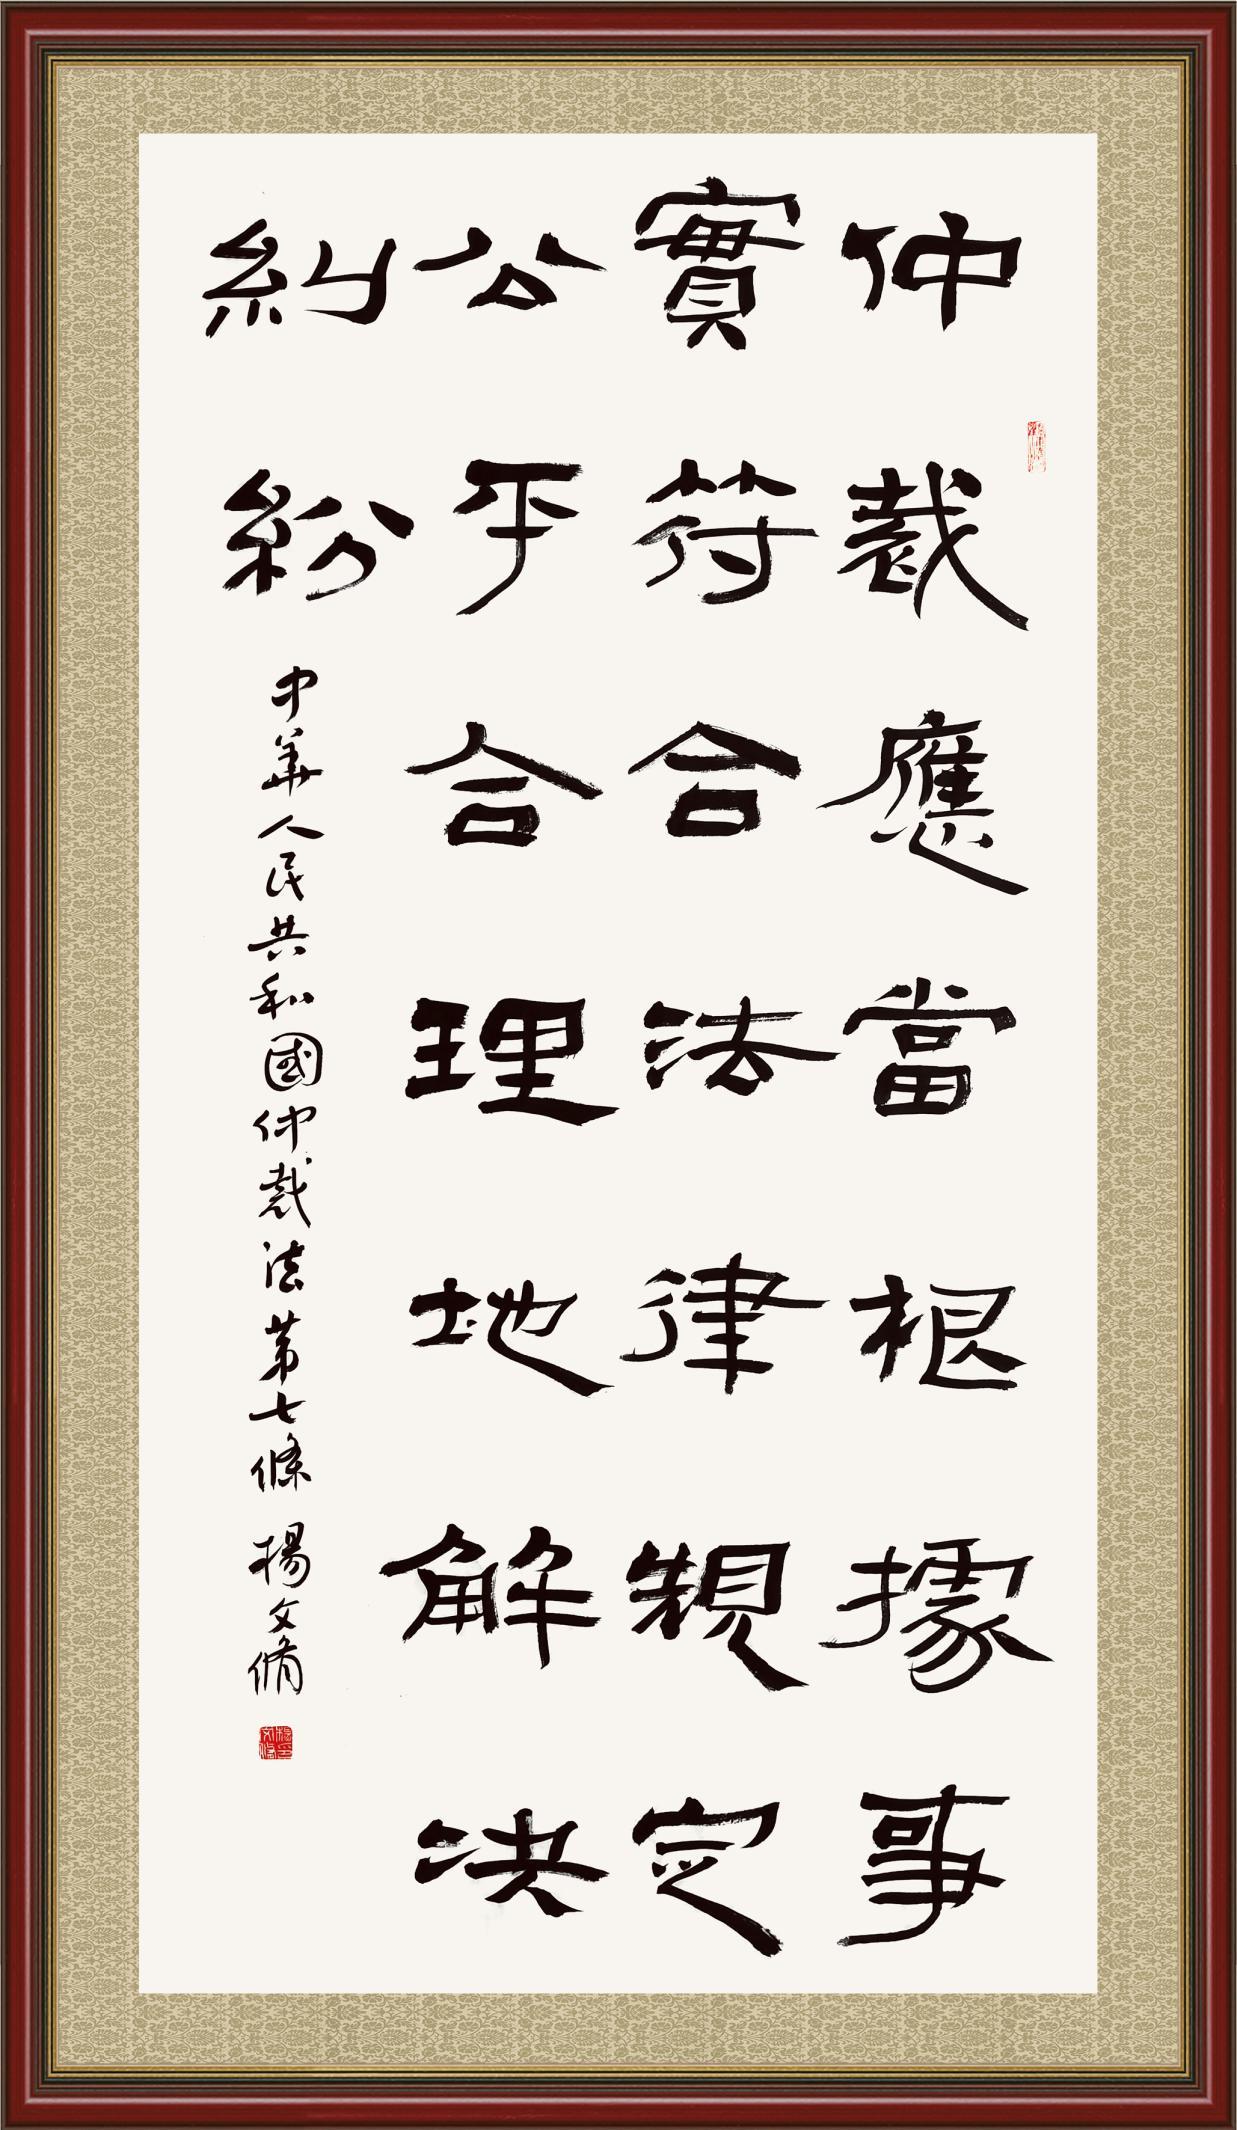 仲裁應當根據事
實符合法律規定
公平合理地解決
糾紛
中華人民共和國仲裁法第七條 楊文脩